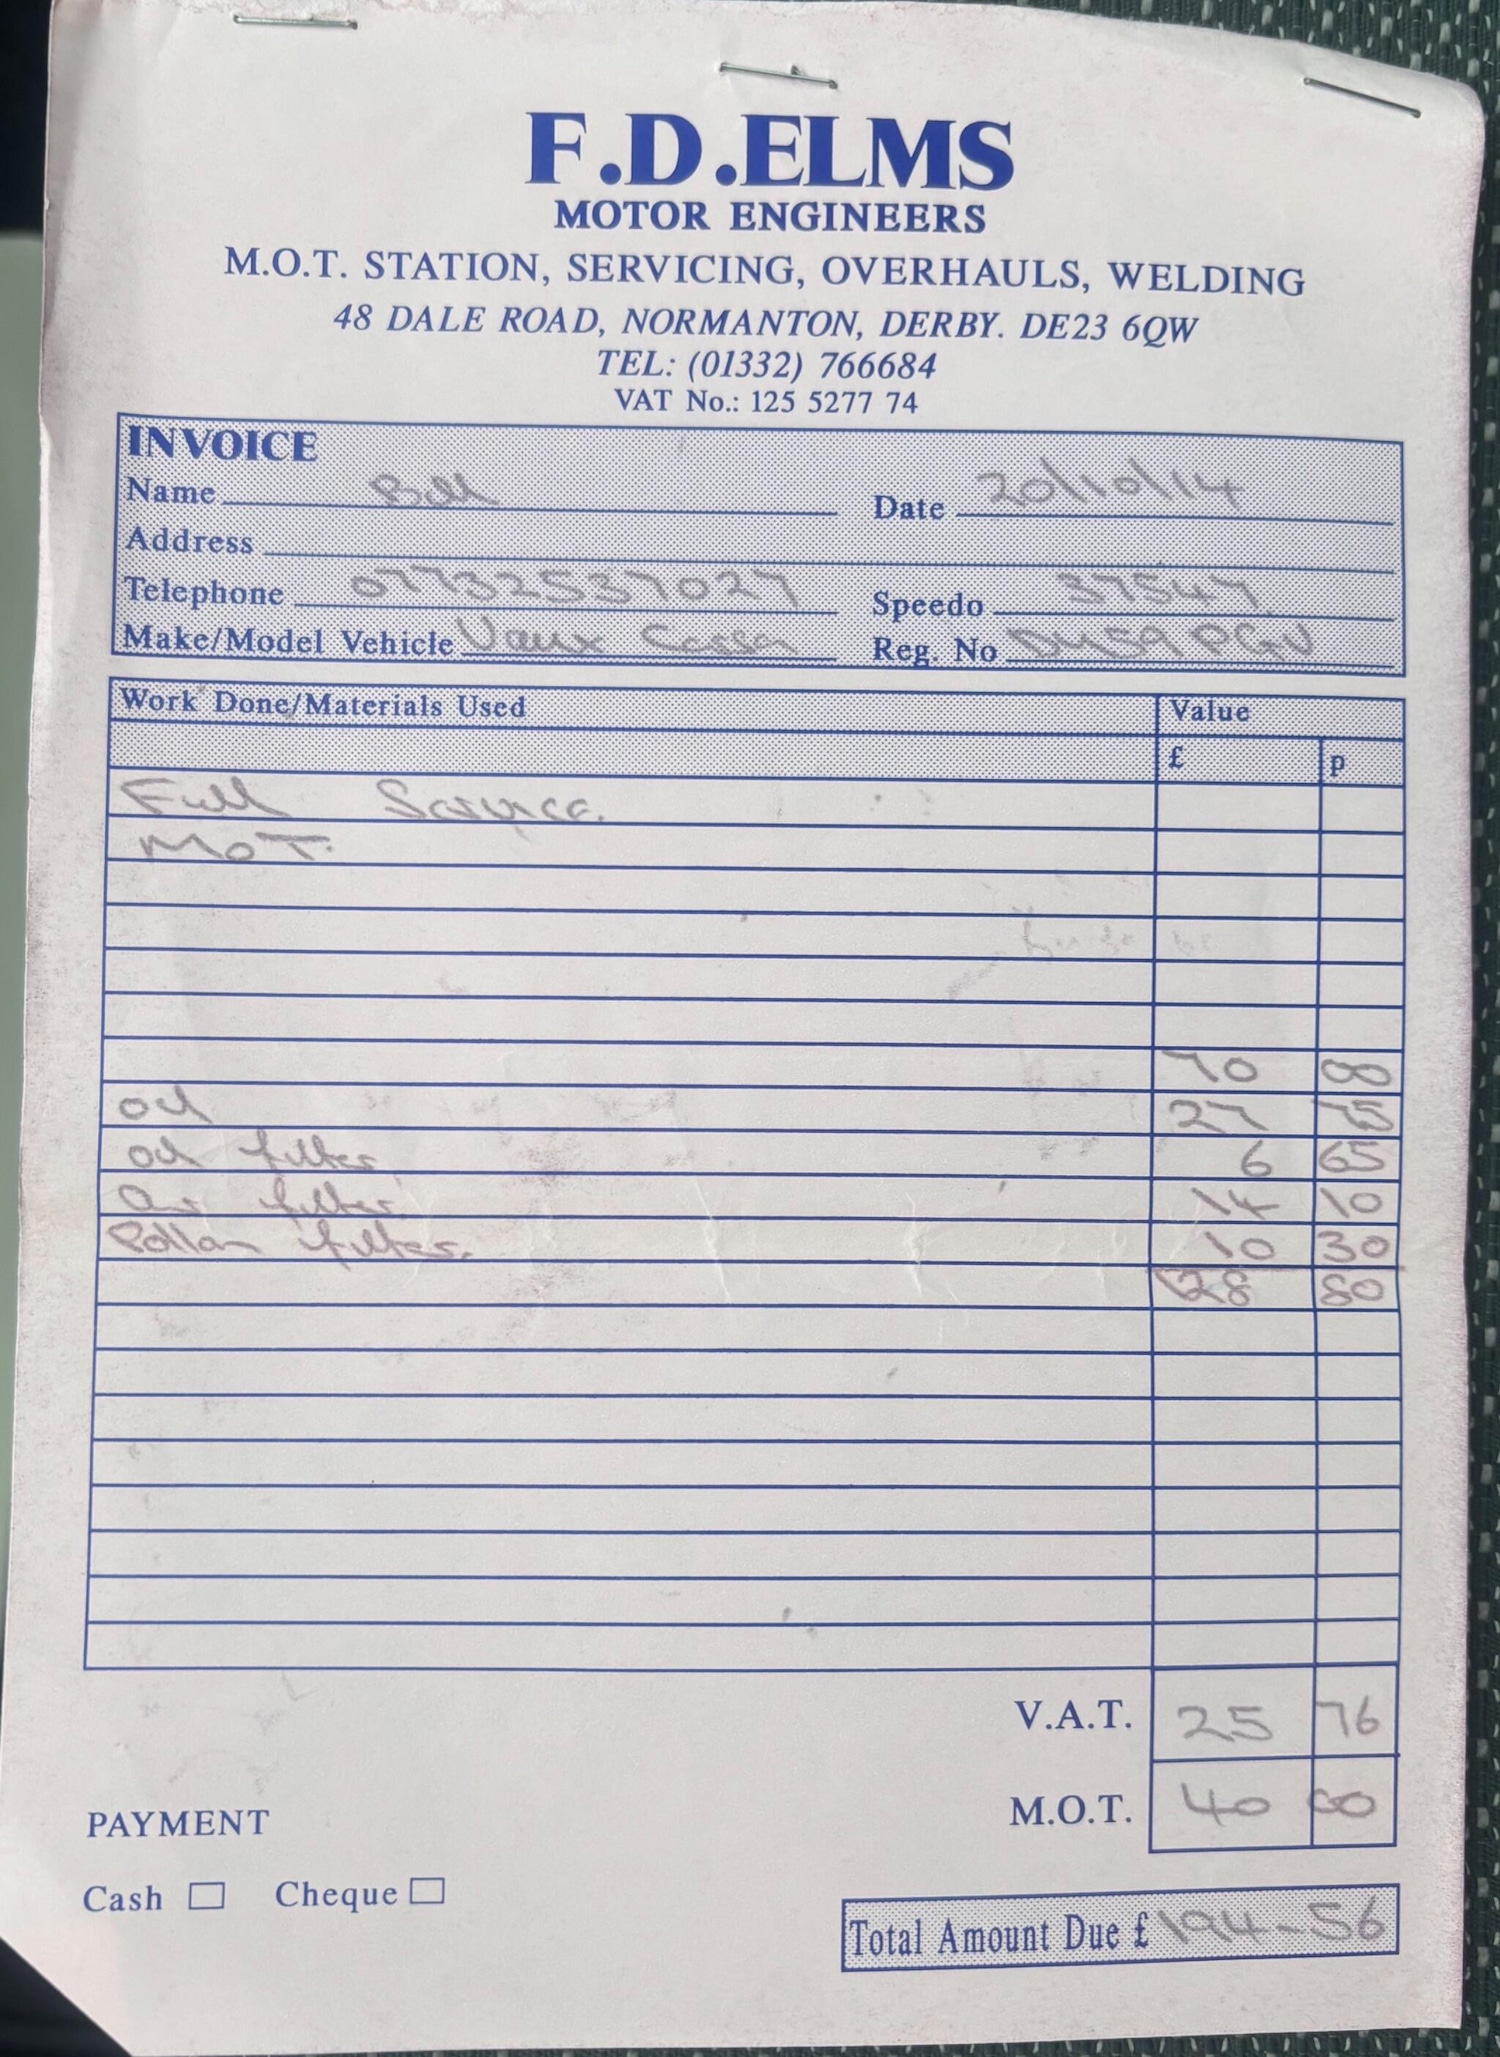 F.D.ELMS
MOTOR ENGINEERS
M.O.T. STATION, SERVICING, OVERHAULS, WELDING
48 DALE ROAD, NORMANTON, DERBY. DE23 6QW
TEL: (01332) 766684
VAT No.: 125 5277 74
INVOICE
Name Bill Date 20/10/14
Address
Telephone 07732537027 Speedo 37547
Make/Model Vehicle Vaux Corsa Reg. No PGV
Work Done/Materials Used Value
£ p
Full Service.
MOT.
70 00
oil 27 75
oil filter 6 65
air filter 14 10
Pollan filter. 10 30
128 80
V.A.T. 25 76
M.O.T. 40 00
PAYMENT
Cash Cheque
Total Amount Due £ 194-56